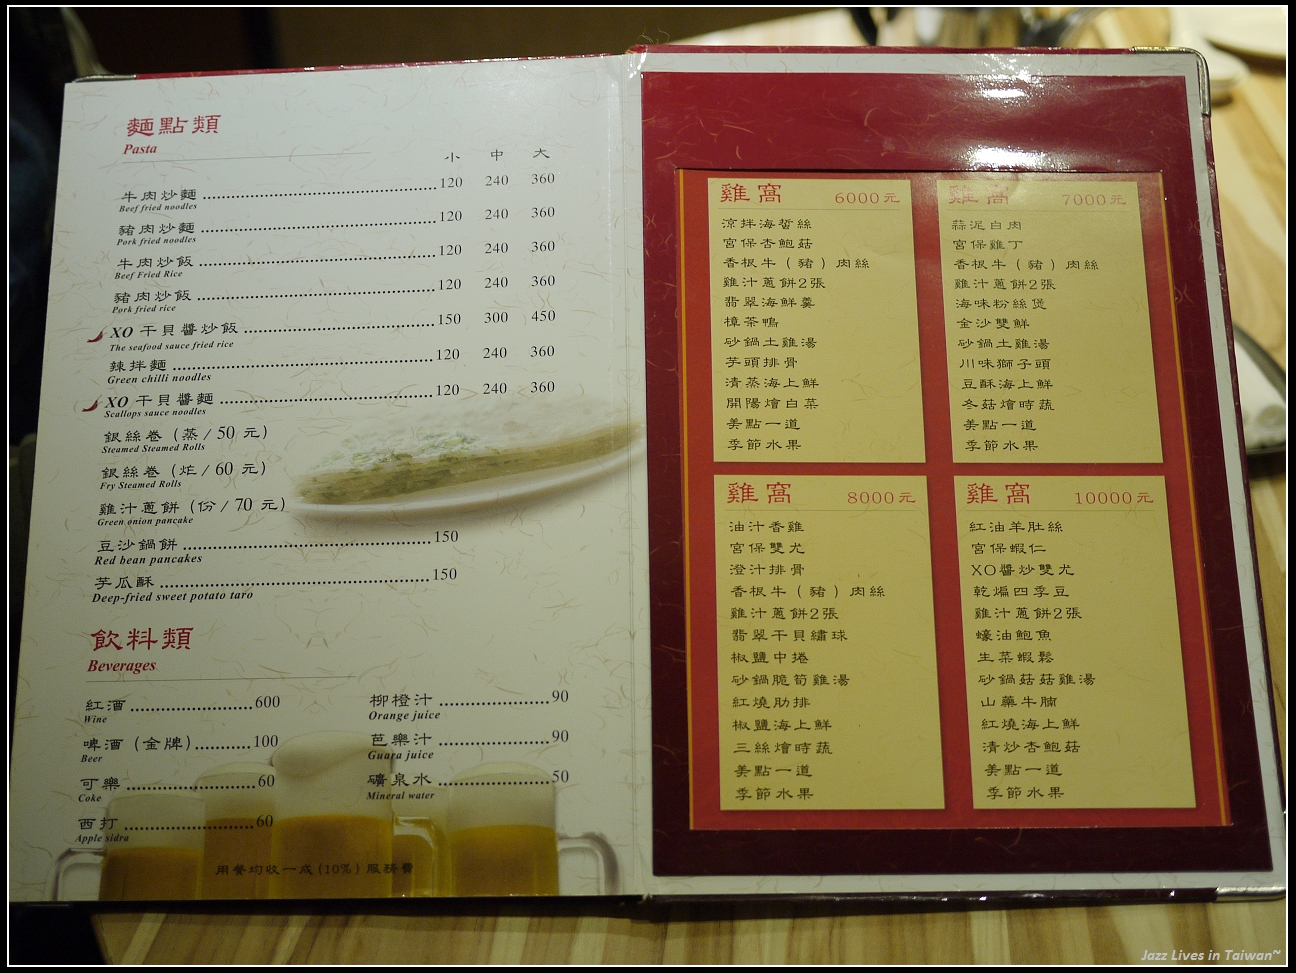 麵點類
Pasta
小 中 大
牛肉炒麵 120 240 360
Beef fried noodles
豬肉炒麵 120 240 360
Pork fried noodles
牛肉炒飯 120 240 360
Beef Fried Rice
豬肉炒飯 120 240 360
Pork fried rice
XO 干貝醬炒飯 150 300 450
The seafood sauce fried rice
辣拌麵 120 240 360
Green chilli noodles
XO 干貝醬麵 120 240 360
Scallops sauce noodles
銀絲卷 (蒸 / 50 元)
Steamed Steamed Rolls
銀絲卷 (炸 / 60 元)
Fry Steamed Rolls
雞汁蔥餅 (份 / 70 元)
Green onion pancake
豆沙鍋餅 150
Red bean pancakes
芋瓜酥 150
Deep-fried sweet potato taro
飲料類
Beverages
紅酒 600
Wine
啤酒 (金牌) 100
Beer
可樂 60
Coke
西打 60
Apple sidra
柳橙汁 90
Orange juice
芭樂汁 90
Guara juice
礦泉水 50
Mineral water
用餐均收一成(10%)服務費
雞窩 6000元
涼拌海蜇絲
宮保杏鮑菇
香根牛(豬)肉絲
雞汁蔥餅2張
翡翠海鮮羹
樟茶鴨
砂鍋土雞湯
芋頭排骨
清蒸海上鮮
開陽燴白菜
美點一道
季節水果
雞窩 7000元
蒜泥白肉
宮保雞丁
香根牛(豬)肉絲
雞汁蔥餅2張
海味粉絲煲
金沙雙鮮
砂鍋土雞湯
川味獅子頭
豆酥海上鮮
冬菇燴時蔬
美點一道
季節水果
雞窩 8000元
油汁香雞
宮保雙尤
澄汁排骨
香根牛(豬)肉絲
雞汁蔥餅2張
翡翠干貝繡球
椒鹽中捲
砂鍋脆筍雞湯
紅燒肋排
椒鹽海上鮮
三絲燴時蔬
美點一道
季節水果
雞窩 10000元
紅油羊肚絲
宮保蝦仁
XO醬炒雙尤
乾煸四季豆
雞汁蔥餅2張
蠔油鮑魚
生菜蝦鬆
砂鍋菇菇雞湯
山藥牛腩
紅燒海上鮮
清炒杏鮑菇
美點一道
季節水果
Jazz Lives in Taiwan~